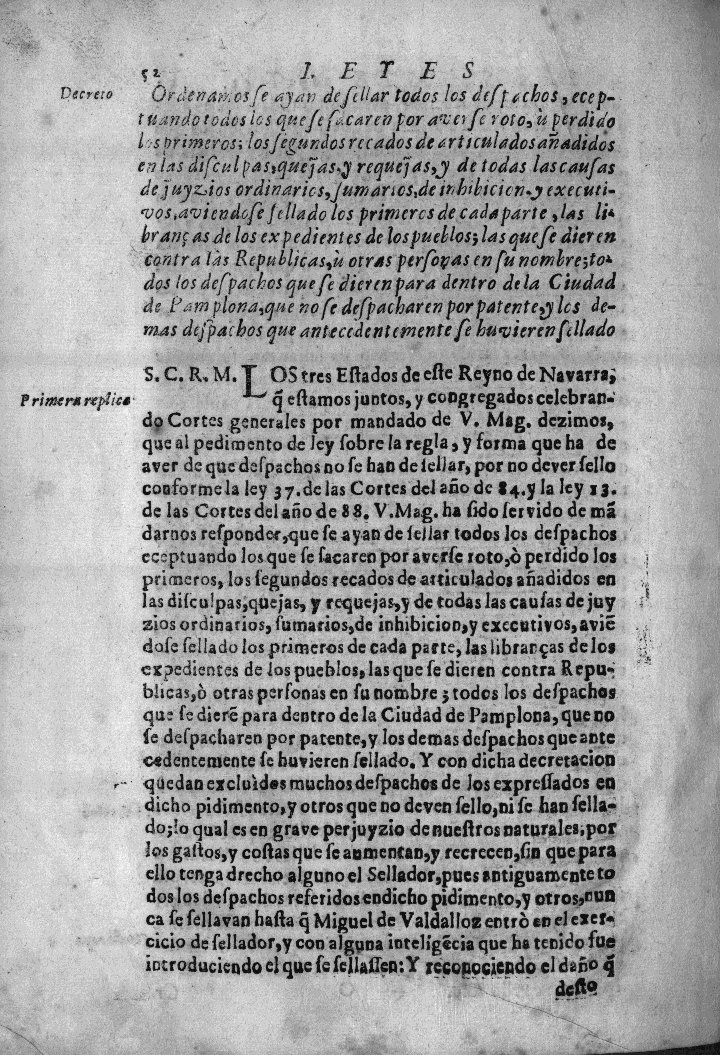 52
I. E Y E S
Decreto
Ordenamos se ayan de sellar todos los despachos, ecep-
tuando todos los que se sacaren por averse roto, ù perdido
los primeros; los segundos recados de articulados añadidos
en las disculpas, quejas, y requejas, y de todas las causas
de juyzios ordinarios, sumarios, de inhibicion, y executi-
vos, aviendose sellado los primeros de cada parte, las li-
branças de los expedientes de los pueblos; las que se dieren
contra las Republicas, ù otras personas en su nombre; to-
dos los despachos que se dieren para dentro de la Ciudad
de Pamplona, que no se despacharen por patente, y los de-
mas despachos que antecedentemente se huvieren sellado
Primera replica
S. C. R. M. LOS tres Estados de este Reyno de Navarra,
q̃ estamos juntos, y congregados celebran-
do Cortes generales por mandado de V. Mag. dezimos,
que al pedimento de ley sobre la regla, y forma que ha de
aver de que despachos no se han de sellar, por no dever sello
conforme la ley 37. de las Cortes del año de 84. y la ley 13.
de las Cortes del año de 88. V. Mag. ha sido servido de mã
darnos responder, que se ayan de sellar todos los despachos
eceptuando los que se sacaren por averse roto, ò perdido los
primeros, los segundos recados de articulados añadidos en
las disculpas, quejas, y requejas, y de todas las causas de juy
zios ordinarios, sumarios, de inhibicion, y executivos, aviẽ
dose sellado los primeros de cada parte, las libranças de los
expedientes de los pueblos, las que se dieren contra Repu-
blicas, ò otras personas en su nombre; todos los despachos
que se dierẽ para dentro de la Ciudad de Pamplona, que no
se despacharen por patente, y los demas despachos que ante
cedentemente se huvieren sellado. Y con dicha decretacion
quedan excluìdos muchos despachos de los expressados en
dicho pidimento, y otros que no deven sello, ni se han sella-
do; lo qual es en grave perjuyzio de nuestros naturales, por
los gastos, y costas que se aumentan, y recrecen, sin que para
ello tenga drecho alguno el Sellador, pues antiguamente to
dos los despachos referidos en dicho pidimento, y otros, nun
ca se sellavan hasta q̃ Miguel de Valdalloz entrò en el exer-
cicio de sellador, y con alguna inteligẽcia que ha tenido fue
introduciendo el que se sellassen: Y reconociendo el daño q̃
desto